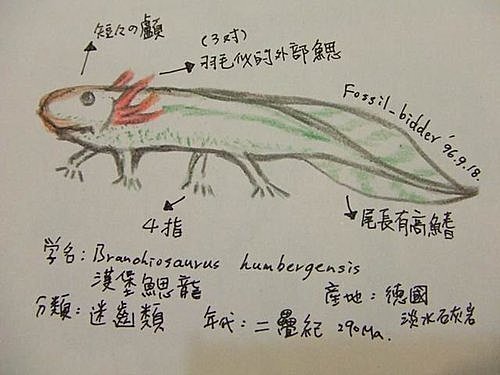 短短の顱
(3対)
羽毛似的外部鰓
Fossil_bidder '96.9.18.
4指
尾長有高鰭
学名:Branchiosaurus humbergensis
漢堡鰓龍
産地:德國
分類:迷齒類
年代:二疊紀 290Ma.
淡水石灰岩